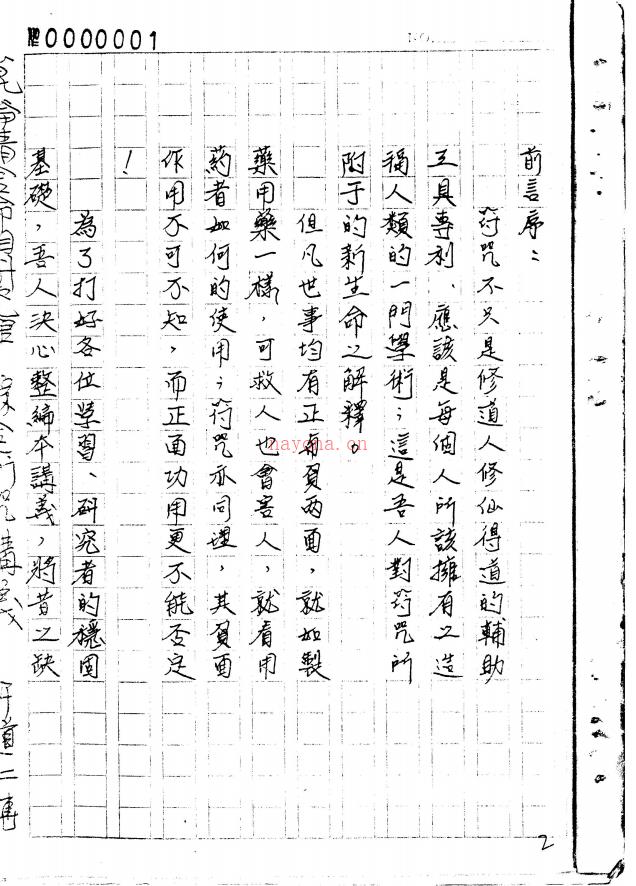 0000001
NO.
前言序：
符咒不只是修道人修仙得道的輔助
工具專利、應該是每個人所該擁有之造
福人類的一門學術；這是吾人對符咒所
附于的新生命之解釋。
但凡世事均有正有負兩面，就如製
藥用藥一樣，可救人也會害人，就看用
葯者如何的使用；符咒亦同理，其負面
作用不可不知，而正面功用更不能否定
！
為了打好各位學習、研究者的穩固
基礎，吾人決心整編本講義，將昔之缺
haycha.cn
2